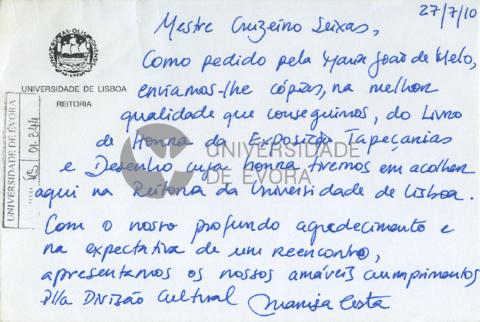 27/7/10
Mestre Cruzeiro Seixas,
Como pedido pela Maria João de Melo,
enviamos-lhe cópias, na melhor
qualidade que conseguimos, do Livro
de Honra da Exposição Tapeçarias
e Desenho cuja honra tivemos em acolher
aqui na Reitoria da Universidade de Lisboa.
Com o nosso profundo agradecimento e
na expectativa de um reencontro,
apresentamos os nossos amáveis cumprimentos
P'lla Divisão Cultural Marisa Costa
UNIVERSIDADE DE LISBOA
REITORIA
UNIVERSIDADE DE ÉVORA
UNIVERSIDADE
DE ÉVORA